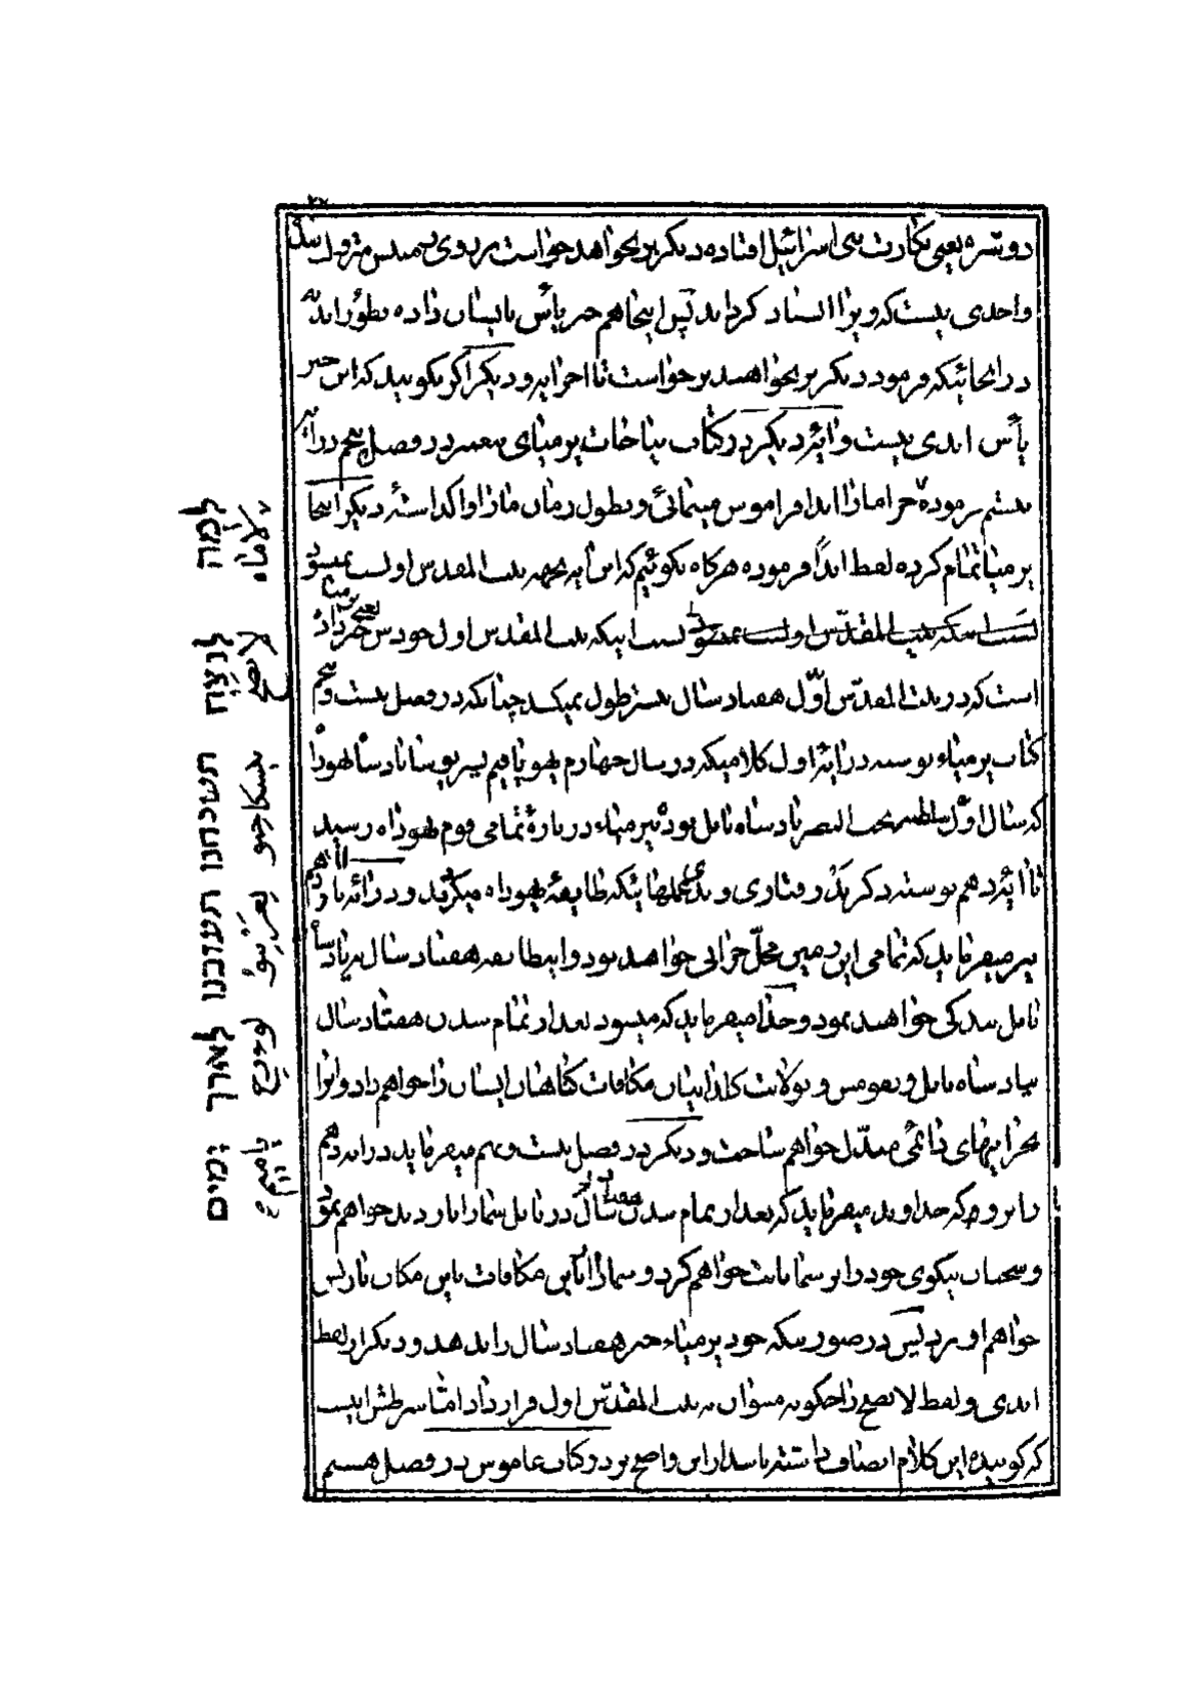 دوشیزه یعنی بکارت بنی اسرائیل افتاده دیگر بر نخواهد خواست بر روی زمینش متروک شد
واحدی نیست که ویرا ایستاد کرداند پس اینجا هم خبر یأس بایشان داده بطور ابدیه
در انجائیکه فرمود دیگر بر نخواهند برخواست تا اخر ایه و دیگر اگر بگویید که این خبر
یأس ابدی نیست و ایهٔ دیگر در کتاب نیاحات یرمیای پیغمبر در فصل پنجم در ایه
بیستم فرموده چرا مارا ابدا فراموش مینمائی و بطول زمان مارا واگذاشتهٔ دیگر اینجا
یرمیا تمام کرده لفظ ابداً فرموده هرگاه بگوئیم که این ایه بجهه بیت المقدس اولست نمیشود
نسبت اینکه بیت المقدس اول خودش یعنی یرمیا خبر داد
است که در بیت المقدس اوّل هفتاد سال بیشتر طول نمیکشد چنانکه در فصل بیست و پنجم
کتاب یرمیاء نوشته در ایهٔ اول کلامیکه در سال چهارم یهویاقیم پسر یوسیا پادشاه یهودا
که سال اوّل بخت النصر پادشاه بابل بود بیرمیاء دربارهٔ تمامی قوم یهوداه رسید
تا ایهٔ دهم نوشته ذکر بد رفتاری و بدی عملهائیکه طایفهٔ یهوداه میکردند و در ایه یازدهم ۱۱
میفرماید که تمامی این زمین محلّ خرابی خواهد بود و این طایفه هفتاد سال بپادشاه
بابل بندگی خواهند نمود و خدا میفرماید که میشود بعد از تمام شدن هفتاد سال
بپادشاه بابل و بقومش و بولایت کلدانیان مکافات گناهان ایشان را خواهم داد و انرا
بخرابیهای دائمی مبدّل خواهم ساخت و دیگر در فصل بیست و نهم میفرماید در ایه دهم
را بروم که خداوند میفرماید که بعد از تمام شدن هفتاد سال در بابل شمارا بازدید خواهم نمود
و سخنان نیکوی خود را بر شما ثابت خواهم کرد و شمارا بابی مکافات باین مکان باز پس
خواهم اورد پس در صورتیکه خود یرمیاء خبر هفتاد سال را بدهد و دیگر از لفظ
ابدی و لفظ لانصح را چگونه میتوان به بیت المقدس اول قرار داد امّا شرطش اینست
که گوینده این کلام انصاف داشته باشد از این واضح تر در کتاب عاموس در فصل هشتم
לָמָה לָנֶצַח תשכחנו תעזבנו לאורך ימים
لاماه لانصح تیشکاحنو تعزبنو لورخ یامیم